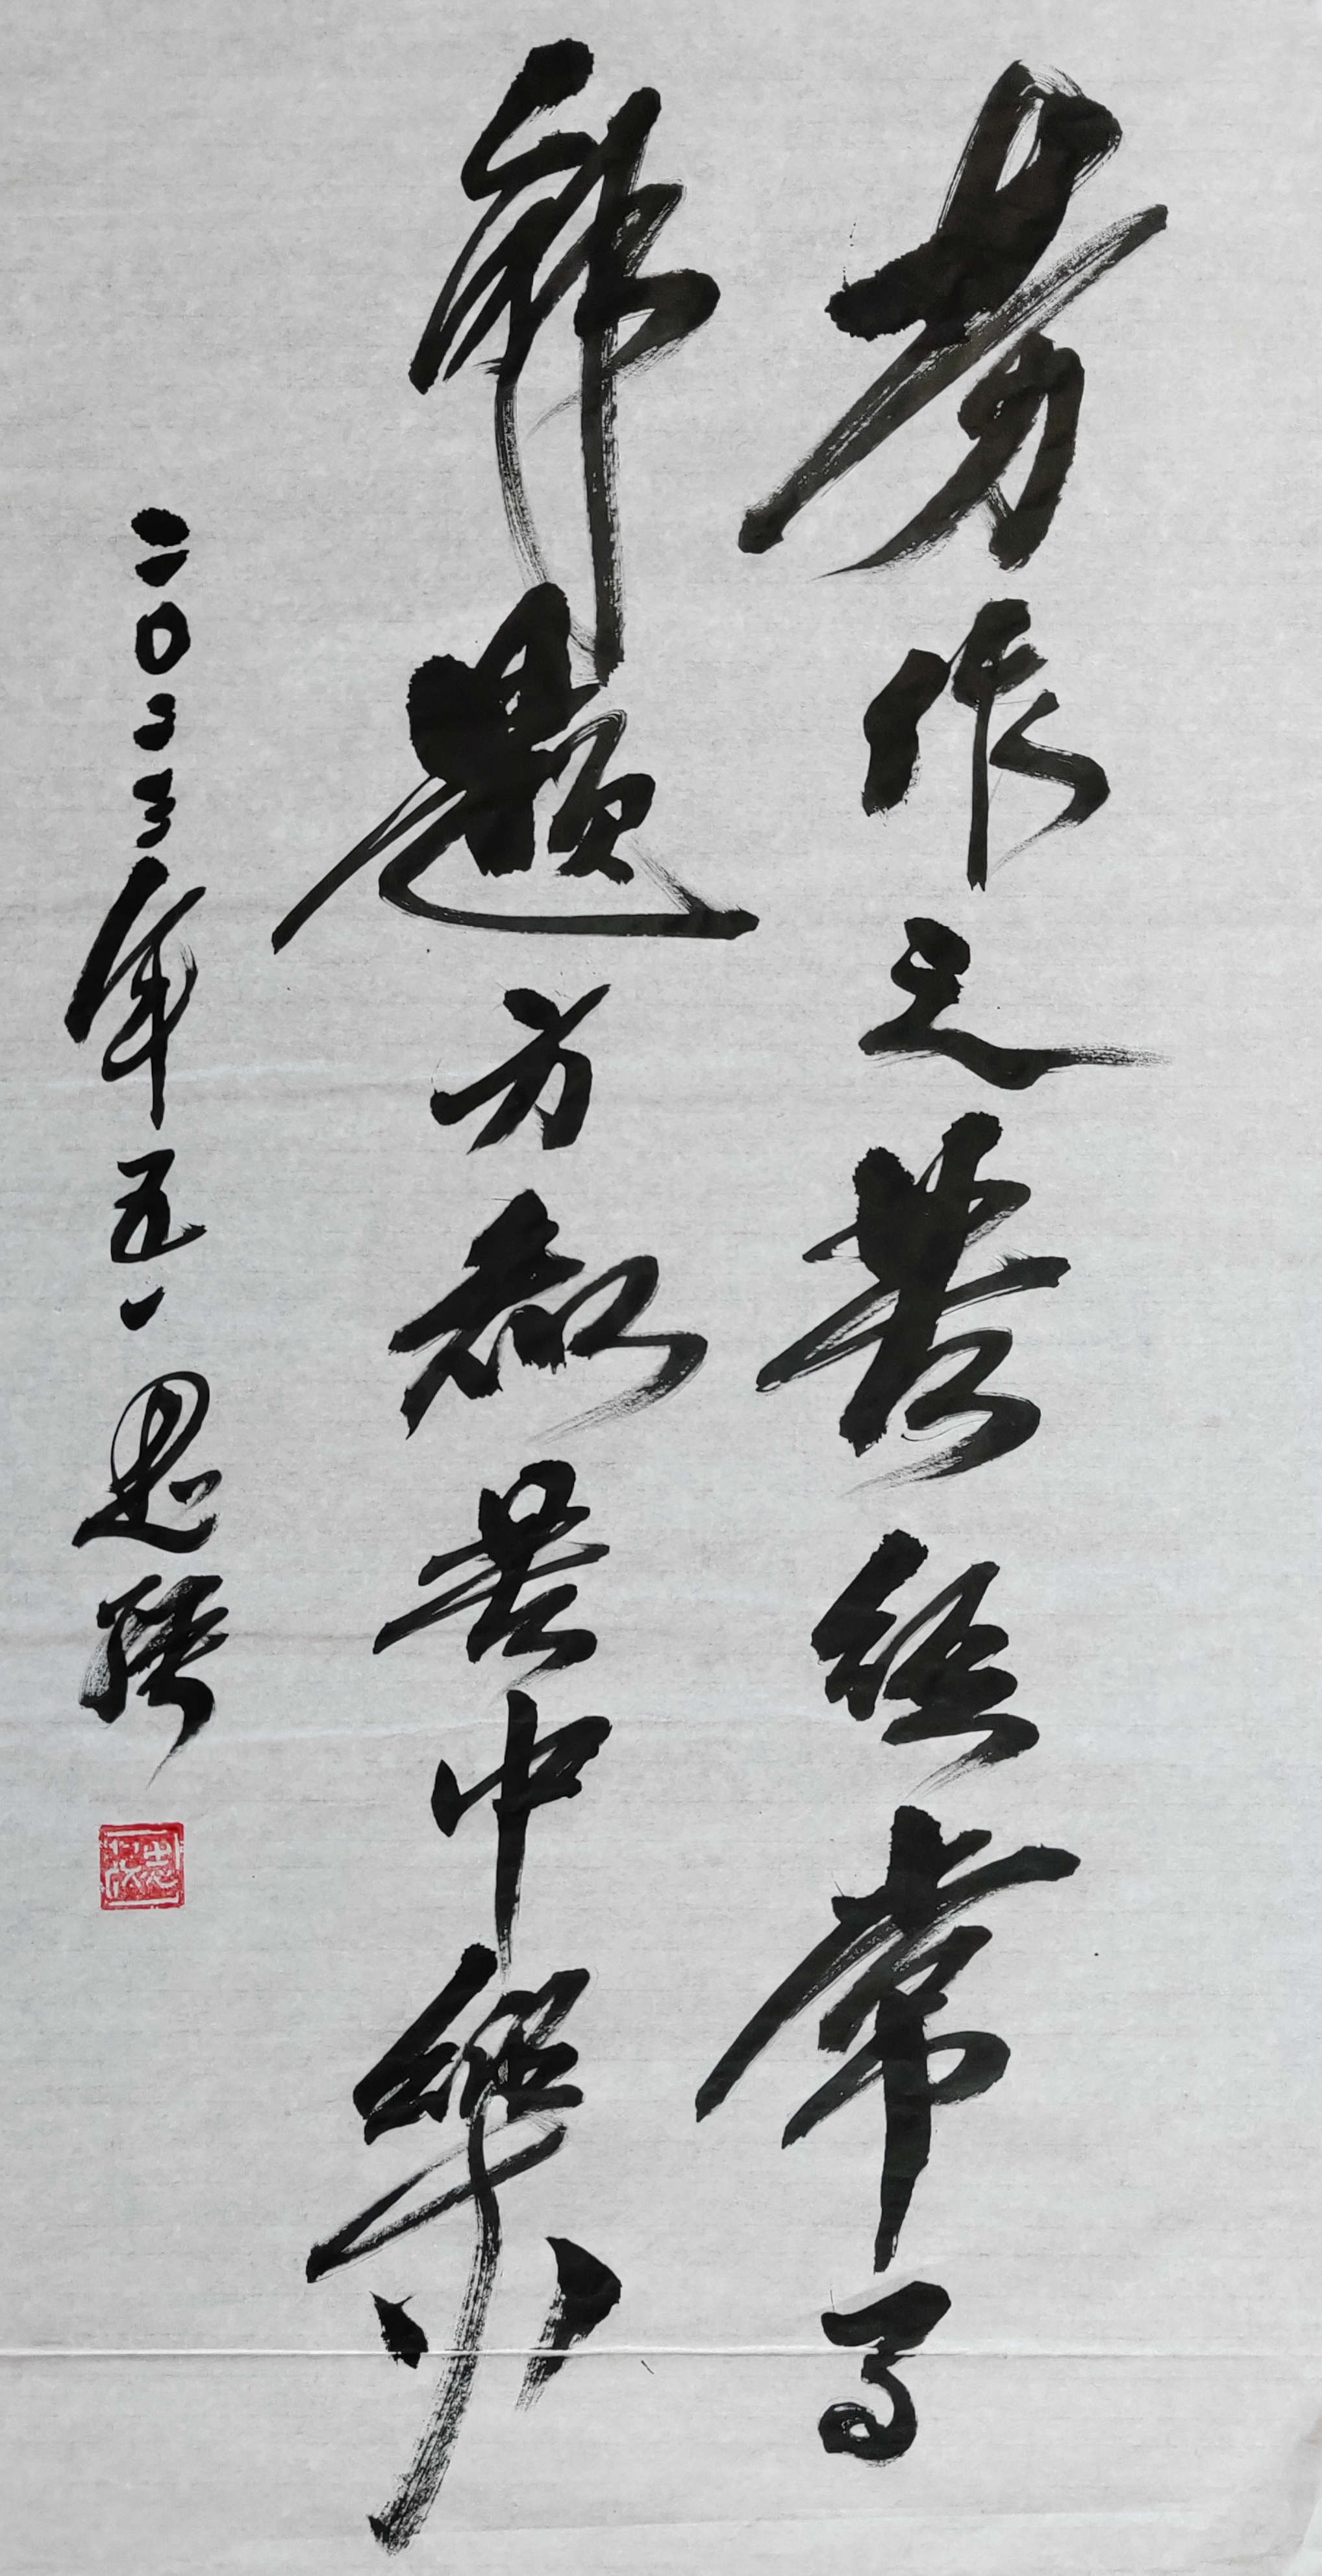 劳作之苦经常
解题方知苦中乐
二0二三年五一 思